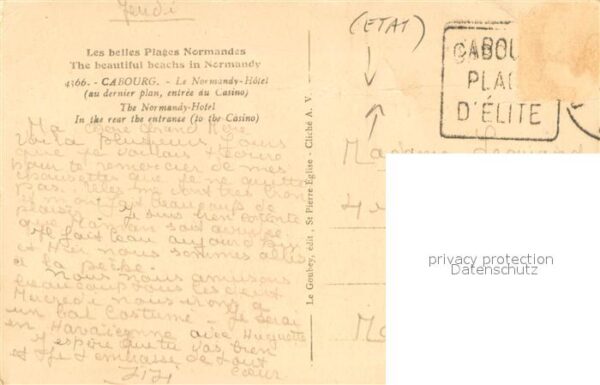 Jeudi
Les belles Plages Normandes
The beautiful beachs in Normandy
4366. - CABOURG. - Le Normandy-Hôtel
(au dernier plan, entrée du Casino)
The Normandy-Hotel
In the rear the entrance (to the Casino)
Ma chère Grand Mère
Voilà plusieurs jours
que je voulais t'écrire
pour te remercier de mes
que je ne quitte
pas. Elles me vont très bien
et m'ont fait beaucoup de
plaisir. Je suis bien contente
que Maman soit arrivée.
Il fait beau aujourd'hui
et Hier nous sommes allés
à la pêche.
Nous nous amusons
beaucoup tous les deux
Mercredi nous irons à
un bal costumé. Je serai
en Havaïenne avec Huguette
J'espère que tu vas bien
et je t'embrasse de tout
cœur
Le Goubey, édit., St Pierre Église - Cliché A. V.
(ETAT)
CABOU
PLA
D'ÉLITE
Madame
privacy protection
Datenschutz